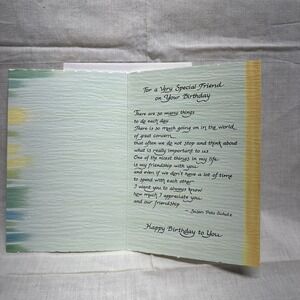 For a Very Special Friend
on Your Birthday
There are so many things
to do each day
There is so much going on in the world
of great concern
that often we do not stop and think about
what is really important to us
One of the nicest things in my life
is my friendship with you
and even if we don't have a lot of time
to spend with each other
I want you to always know
how much I appreciate you
and our friendship
– Susan Polis Schutz
Happy Birthday to You